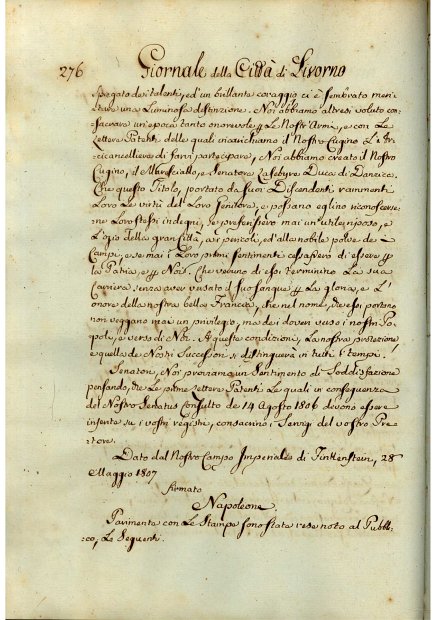 276 Giornale della Città di Livorno
spiegato dei talenti, ed'un brillante coraggio ci è sembrato meri-
tare una Luminosa distinzione. Noi abbiamo altresì voluto con-
sacrare un'epoca tanto onorevole ꝑ Le Nostr'Armi, e con Le
Lettere Patenti delle quali incarichiamo il Nostro Cugino L'Ar-
cicancelliere di farvi partecipare, Noi abbiamo creato il Nostro
Cugino, il Maresciallo, e Senatore Lefebvre Duca di Danzica.
Che questo Titolo, portato da suoi Discendenti rammenti
Loro Le virtù del Loro Genitore, e possano eglino riconoscerse-
ne Loro stessi indegni, se preferissero mai un vile riposo, e
L'ozio della gran Città, ai pericoli, ed'alla nobile polve de
Campi, e se mai i Loro primi sentimenti cessassero di essere ꝑ
La Patria, e ꝑ Noi. Che veruno di essi termini La sua
Carriera, senza aver versato il suo sangue ꝑ La gloria, e L'
onore della nostra bella Francia, che nel nome, che essi portano
non veggano mai un privilegio, ma dei doveri verso i nostri Po-
poli, e verso di Noi. A queste condizioni, La nostra protezione,
e quella de Nostri Successori si distinguerà in tutti i tempi.
Senatori, Noi proviamo un Sentimento di Soddisfazione
pensando, che Le prime Lettere Patenti Le quali in conseguenza
del Nostro Senatus Consulto de 14 Agosto 1806 devono essere
inserite su i vostri registri, consacrino i Servigi del vostro Pre-
tore.
Dato dal Nostro Campo Imperiale di Finkenstein, 28
Maggio 1807
firmato
Napoleone.
Parimente con Le Stampe sono state rese note al Pubbli-
co, Le Seguenti.